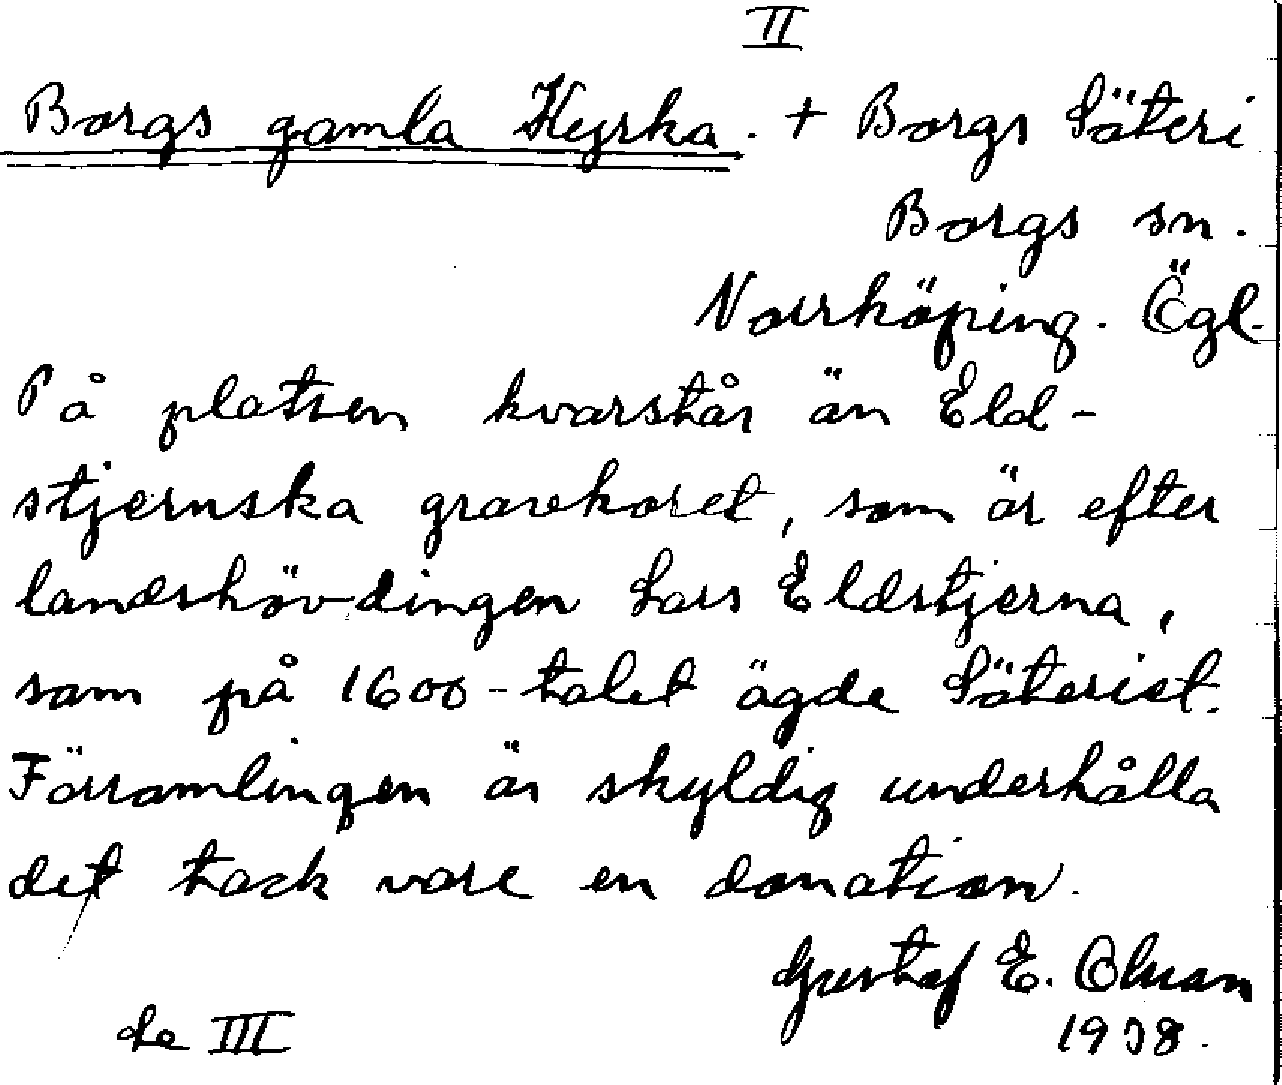 II
Borgs gamla Kyrka. + Borgs Säteri
Borgs sn.
Norrköping. Ögl.
På platsen kvarstår än Eld-
stjernska gravkoret, som är efter
landshövdingen Lars Eldstjerna,
som på 1600-talet ägde Säteriet.
Församlingen är skyldig underhålla
det tack vare en donation.
Gustaf E. Olsson
1938.
Se III